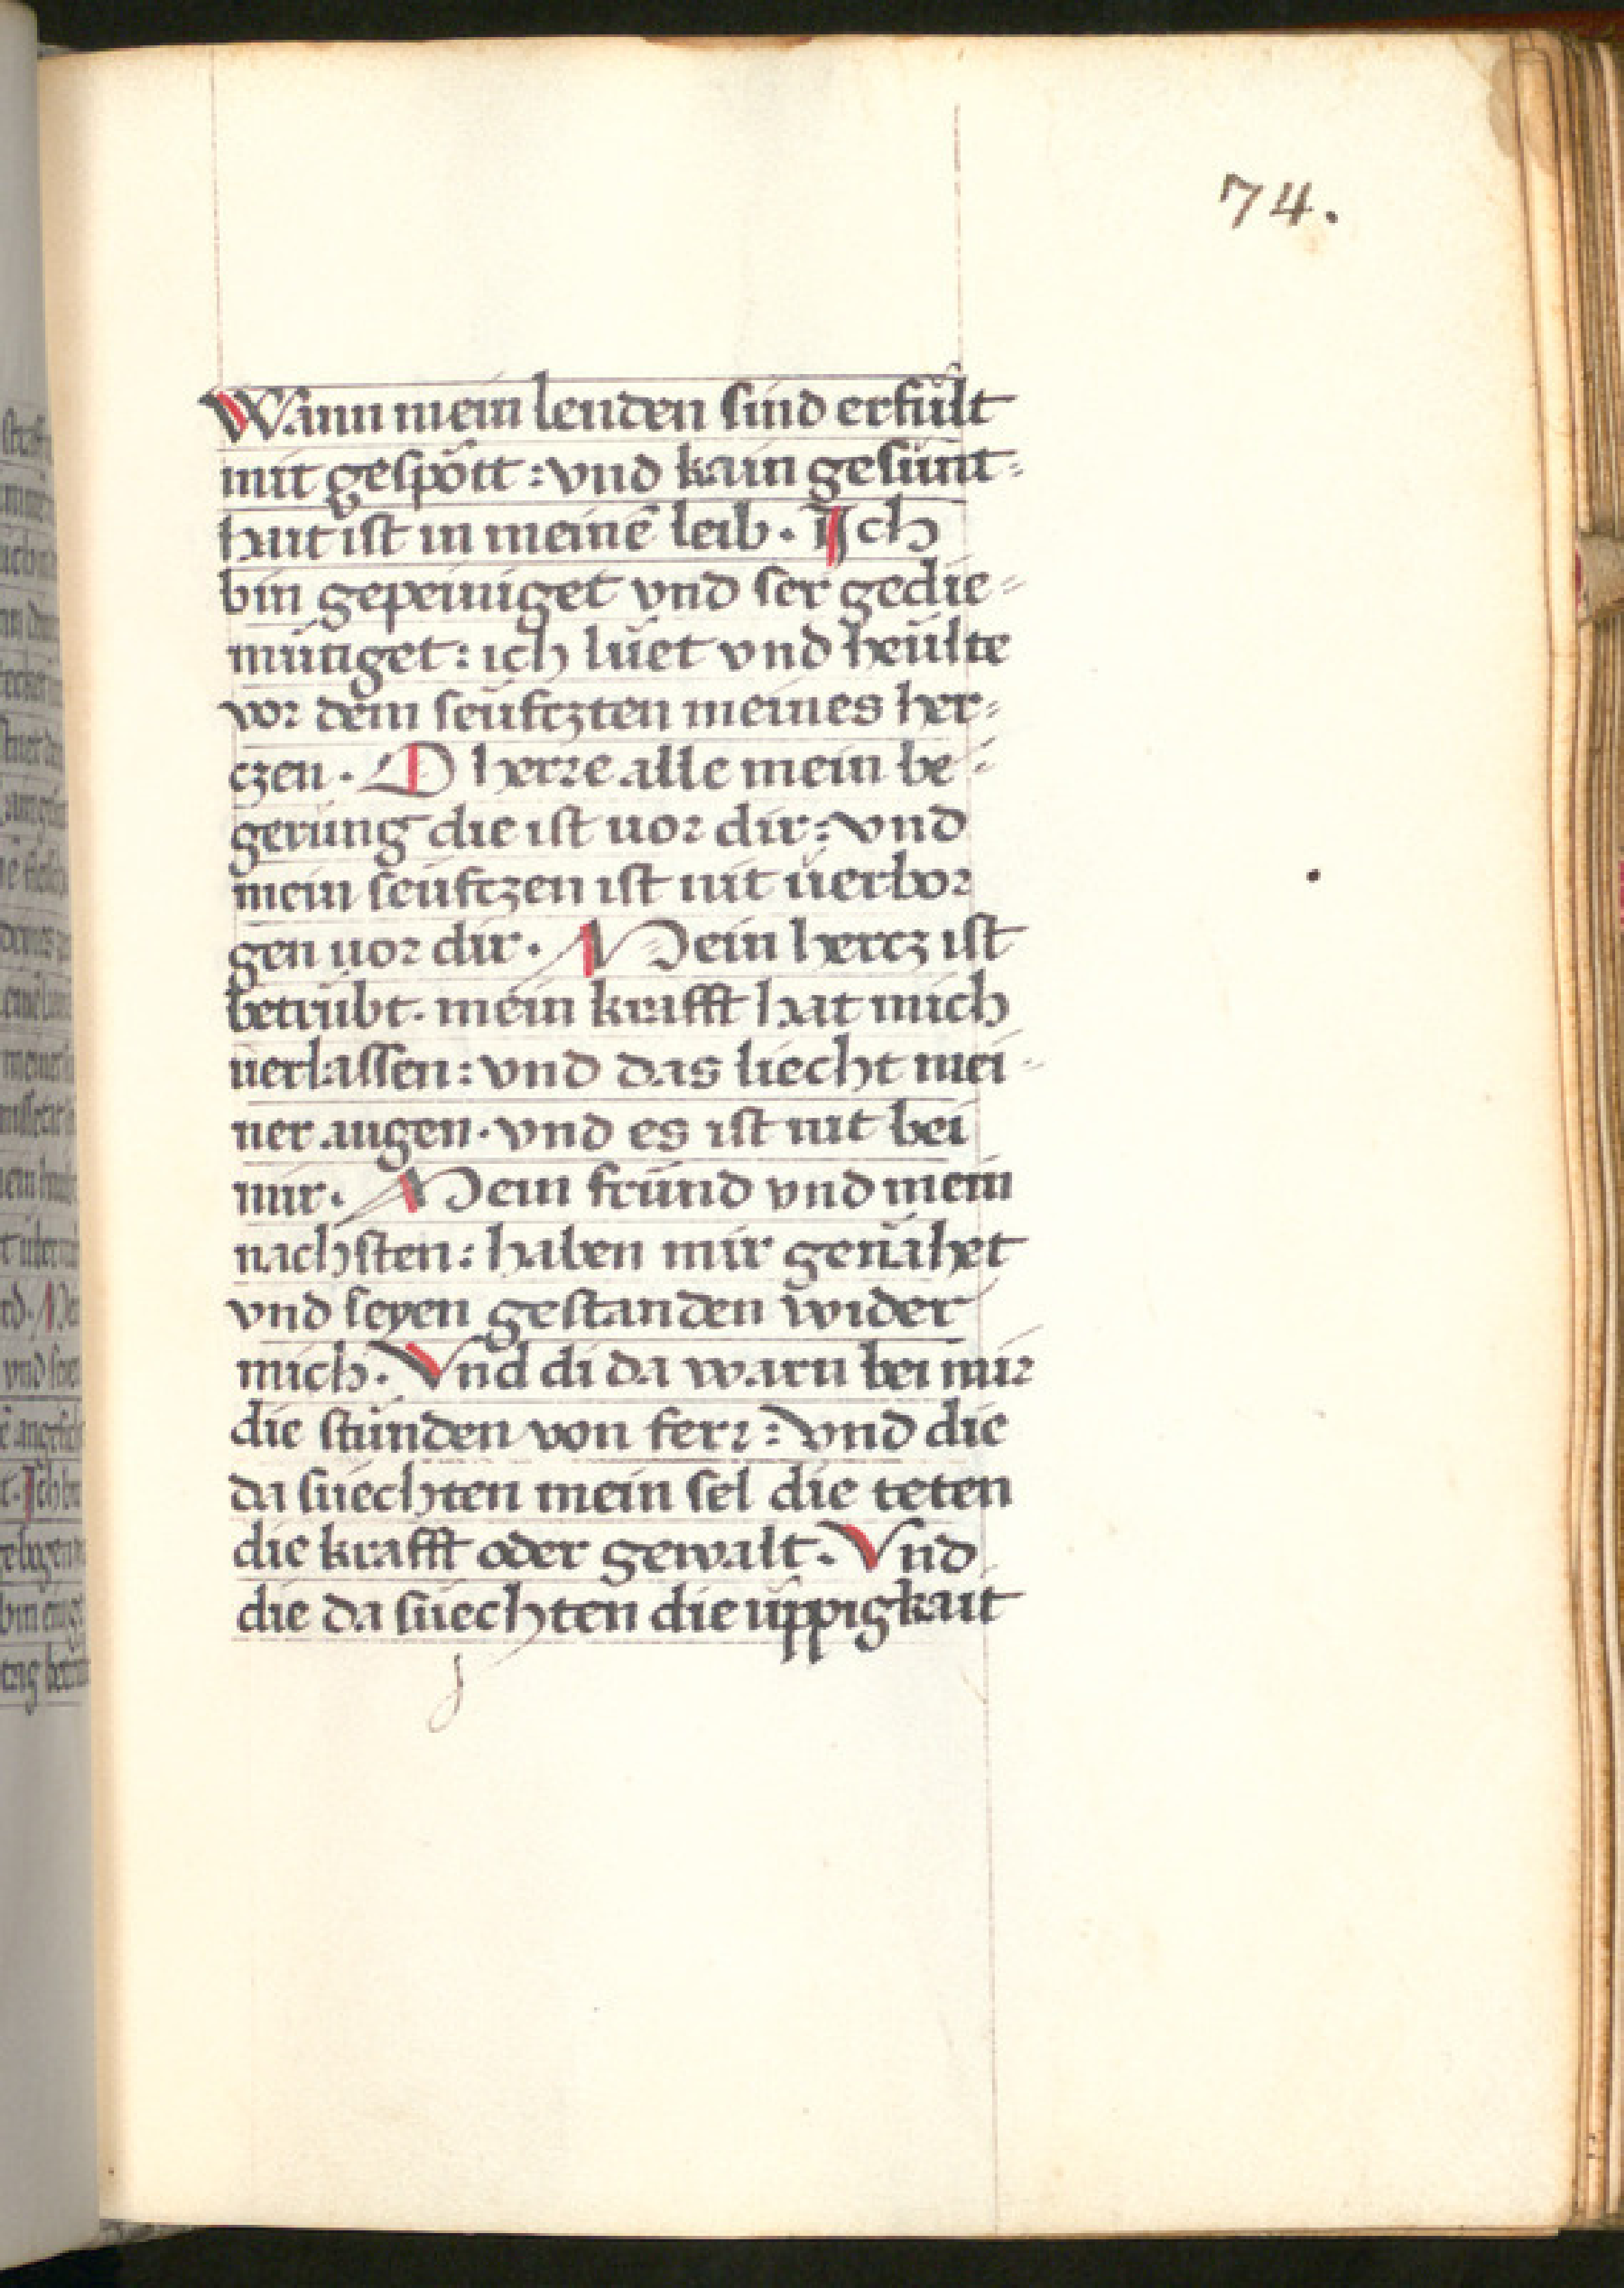 74.
Wann mein lenden sind erfült
mit gespött: vnd kain gesünt=
hait ist in meinē leib. Ich
bin gepeiniget vnd ser gedie=
mütiget: ich lüet vnd heülte
vor dem seüfczten meines her=
czen. O herre alle mein be=
gerüng die ist uor dir: vnd
mein seüfczen ist nit üerbor
gen uor dir. Mein hercz ist
betrübt. mein krafft hat mich
üerlassen: vnd das liecht mei=
ner augen. vnd es ist nit bei
mir. Mein fründ vnd mein
nachsten: haben mir genähet
vnd seyen gestanden wider
mich. Vnd di da warn bei mir
die stünden von ferr: vnd die
da süechten mein sel die teten
die krafft oder gewalt. Vnd
die da süechten die üppigkait